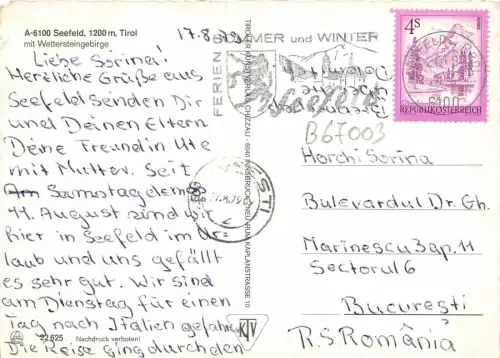 A-6100 Seefeld, 1200 m, Tirol
mit Wettersteingebirge
17.8.79
Liebe Sorina!
Herzliche Grüße aus
Seefeld senden Dir
und Deinen Eltern
Deine Freundin Ute
mit Mutter. Seit
Am Samstag dem
11. August sind wir
hier in Seefeld im Ur-
laub und uns gefällt
es sehr gut. Wir sind
am Dienstag für einen
Tag nach Italien gefahren
Die Reise ging durch den
22525 Nachdruck verboten!
FERIEN
SOMMER und WINTER
Seefeld
TIROLER KUNSTVERLAG CHIZZALI · 6040 INNSBRUCK-NEURUM, KAPLANSTRASSE 10
KTV
4S
REPUBLIK ÖSTERREICH
6100
B67003
Horchi Sorina
Bulevardul Dr. Gh.
Marinescu Bap. 11
Sectorul 6
București
R.S. România